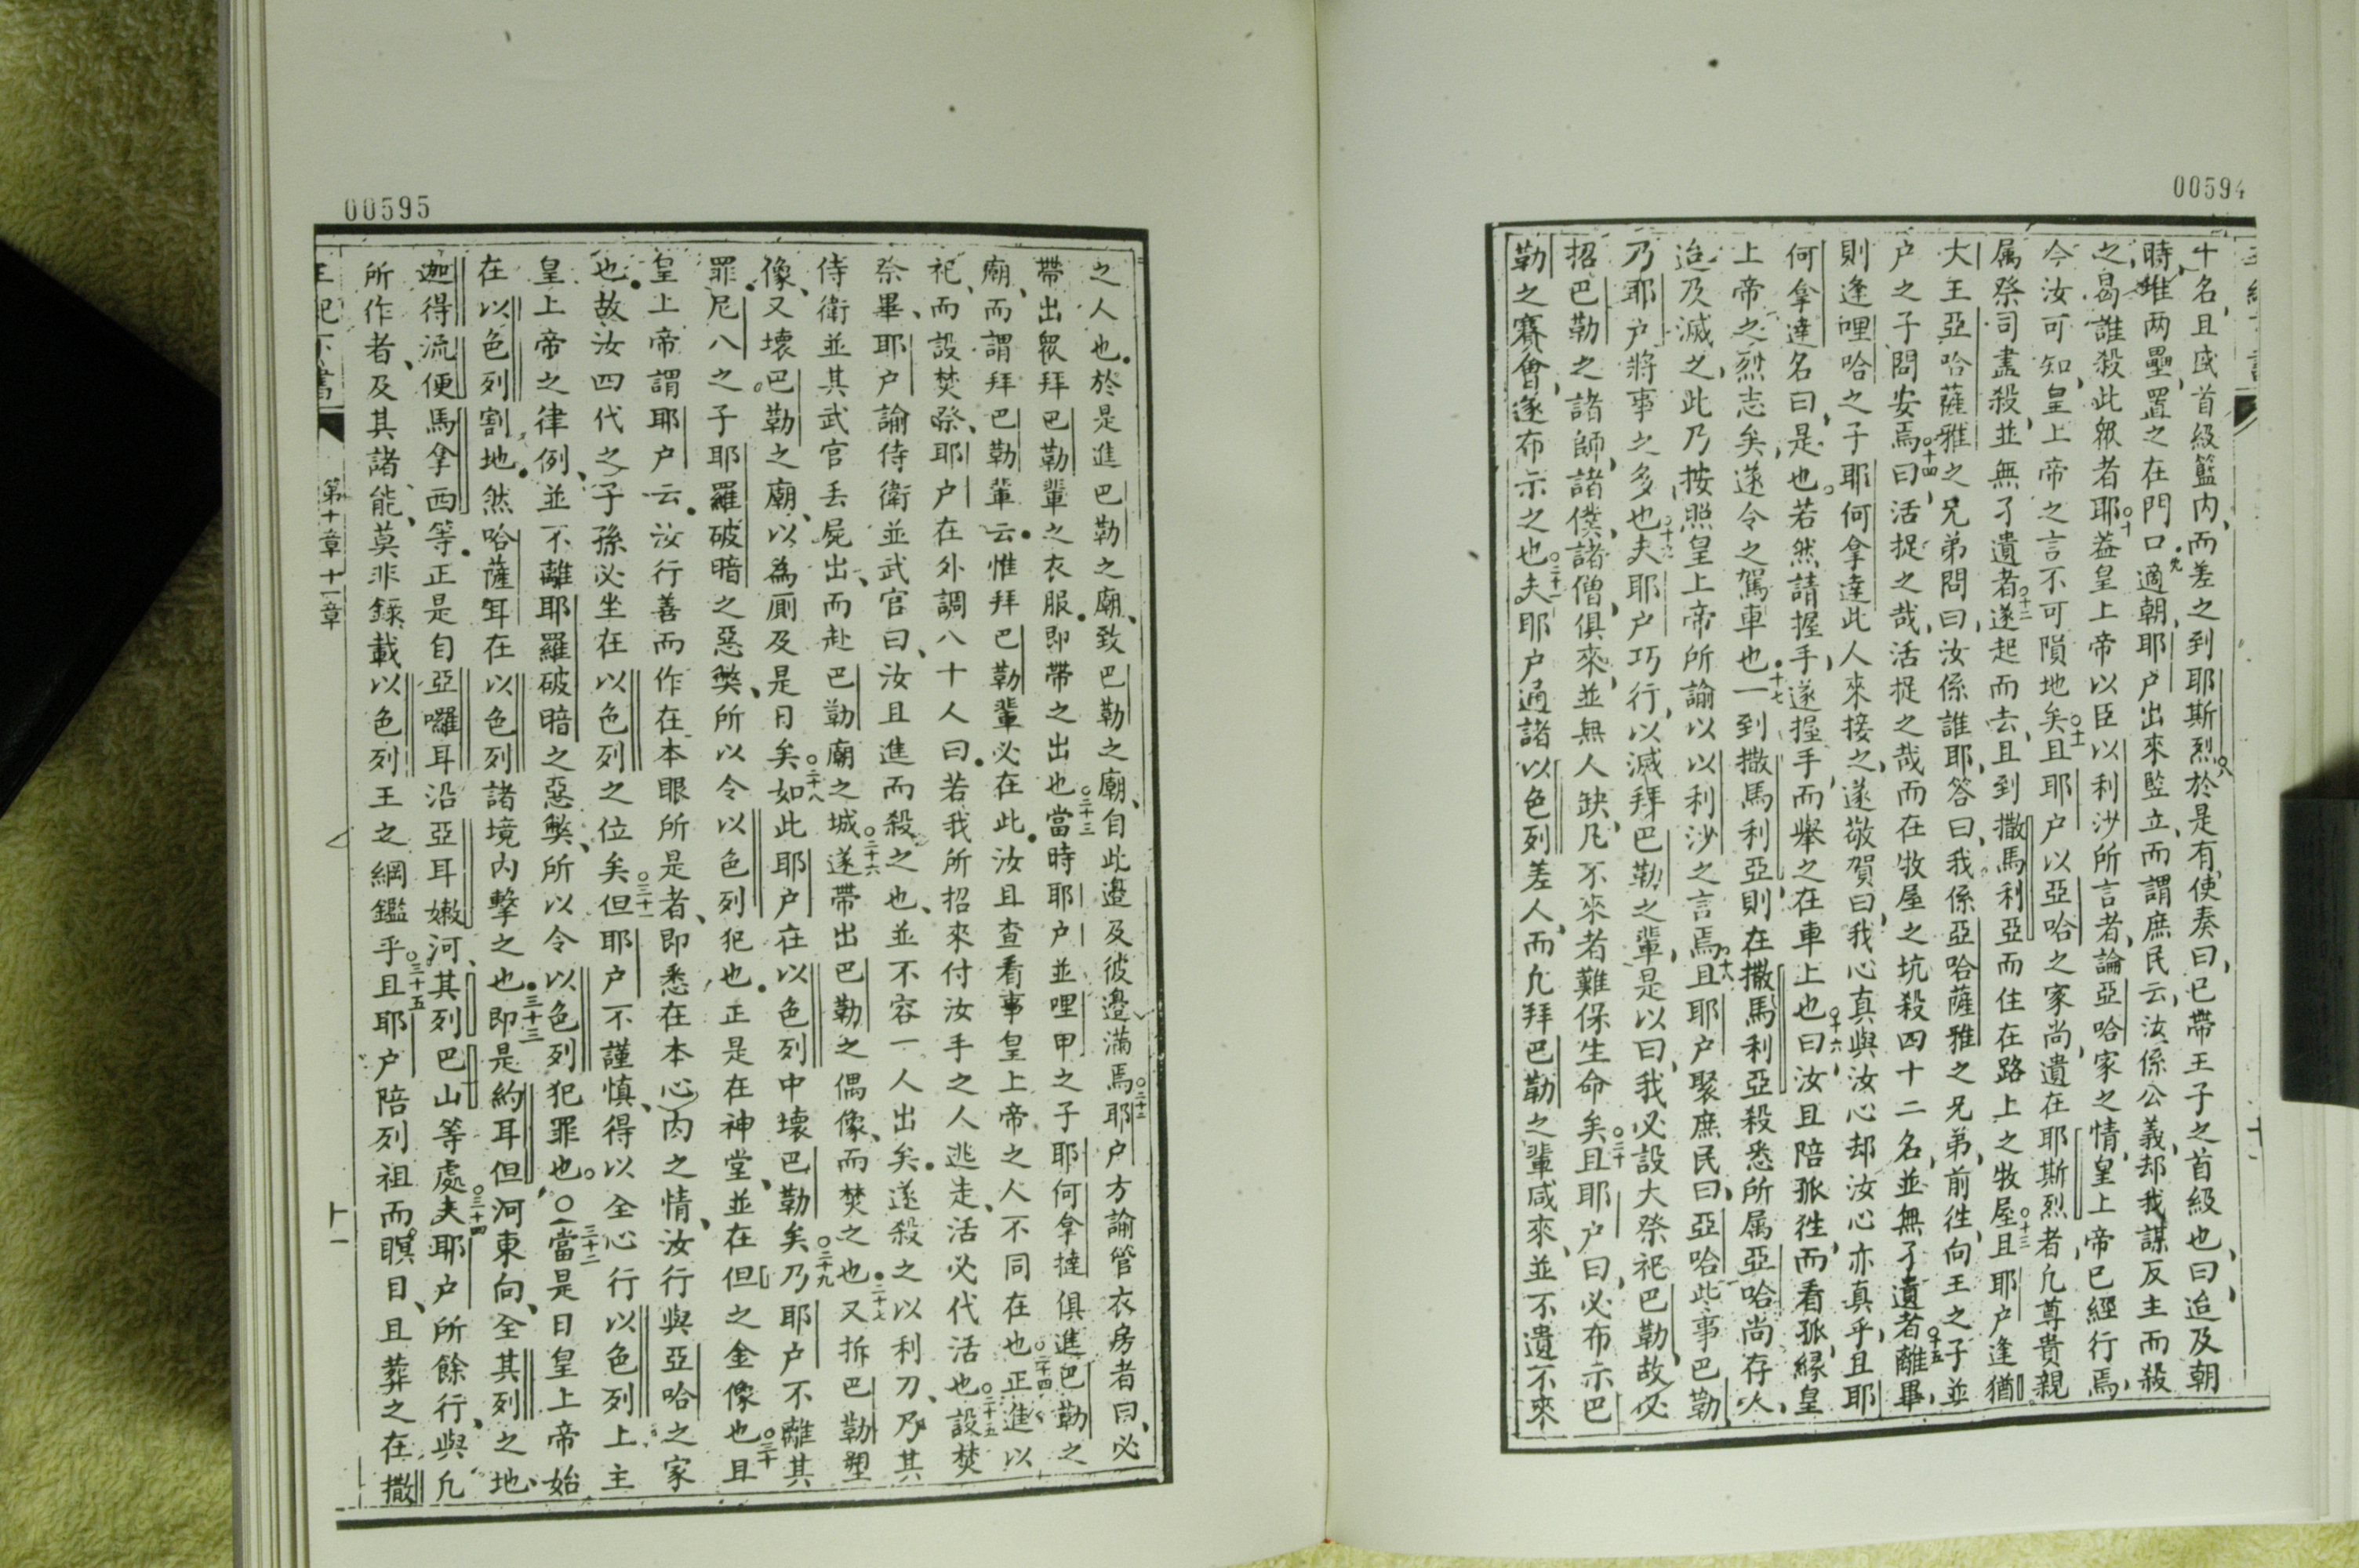 00594
十名、且盛首級籃内、而差之到耶斯烈○八於是有使奏曰、已帶王子之首級也、曰迨及朝
時堆两壘、置之在門口○九適朝、耶户出來監立、而謂庶民云、汝係公義、却我謀反主而殺
之、曷誰殺此眾者耶○十蓋皇上帝以臣以利沙所言者、論亞哈家之情、皇上帝已經行焉、
今汝可知、皇上帝之言不可隕地矣○十一且耶户以亞哈之家尚遺在耶斯烈者、凡尊貴親
属祭司盡殺、並無孑遺者○十二遂起而去、且到撒馬利亞而住在路上之牧屋○十三且耶户逢猶
大王亞哈薩雅之兄弟問曰、汝係誰耶、答曰、我係亞哈薩雅之兄弟、前徃向王之子並
户之子問安焉○十四曰活捉之哉、活捉之哉而在牧屋之坑殺四十二名、並無孑遺者○十五離畢、
則逢哩哈之子耶何拿達此人來接之、遂敬賀曰、我心真與汝心却汝心亦真乎、且耶
何拿達名曰、是也。若然請握手、遂握手、而舉之在車上也○十六曰汝且陪孤徃、而看孤、縁皇
上帝之烈志矣、遂令之駕車也○十七一到撒馬利亞、則在撒馬利亞殺悉所属亞哈尚存人、
迨及滅之、此乃按照皇上帝所諭以以利沙之言焉○十八且耶户聚庶民曰、亞哈些事巴勒
乃耶户將事之多也○十九夫耶户巧行、以滅拜巴勒之輩、是以曰、我必設大祭祀巴勒、故必
招巴勒之諸師、諸僕、諸僧、俱來、並無人缺、凡不來者難保生命矣○二十且耶户曰、必布示巴
勒之賽會、遂布示之也○二十一夫耶户通諸以色列差人、而凡拜巴勒之輩咸來、並不遺不來
00595
之人也、於是進巴勒之廟、致巴勒之廟、自此邊及彼邊滿焉○二十二耶户方諭管衣房者曰、必
帶出眾拜巴勒輩之衣服、即帶之出也○二十三當時耶户並哩甲之子耶何拿撻俱進巴勒之
廟、而謂拜巴勒輩云、惟拜巴勒輩必在此、汝且查看事皇上帝之人不同在也○二十四正進以
祀、而設焚祭、耶户在外調八十人曰、若我所招來付汝手之人逃走、活必代活也○二十五設焚
祭畢、耶户諭侍衛並武官曰、汝且進而殺之也、並不容一人出矣、遂殺之以利刀、乃其
侍衛並其武官丢屍出、而赴巴勒廟之城○二十六遂帶出巴勒之偶像、而焚之也○二十七又拆巴勒塑
像、又壞巴勒之廟、以為厠及是日矣○二十八如此耶户在以色列中壞巴勒矣○二十九乃耶户不離其
罪、尼八之子耶羅破暗之惡獘、所以令以色列犯也、正是在神堂、並在但之金像也○三十且
皇上帝謂耶户云、汝行善而作在本眼所是者、即悉在本心内之情、汝行與亞哈之家
也、故汝四代之子孫必坐在以色列之位矣○三十一但耶户不謹慎、得以全心行以色列上主
皇上帝之律例、並不離耶羅破暗之惡獘、所以令以色列犯罪也。○三十二當是日皇上帝始
在以色列割地、然哈薩耳在以色列諸境内擊之也○三十三即是約耳但河東向、全其列之地、
迦得流便馬拿西等、正是自亞囉耳沿亞耳嫩河、其列巴山等處○三十四夫耶户所餘行、與凡
所作者、及其諸能、莫非錄載以色列王之綱鑑乎○三十五且耶户陪列祖而瞑目、且葬之在撒
王紀下書 第十章十一章 十一